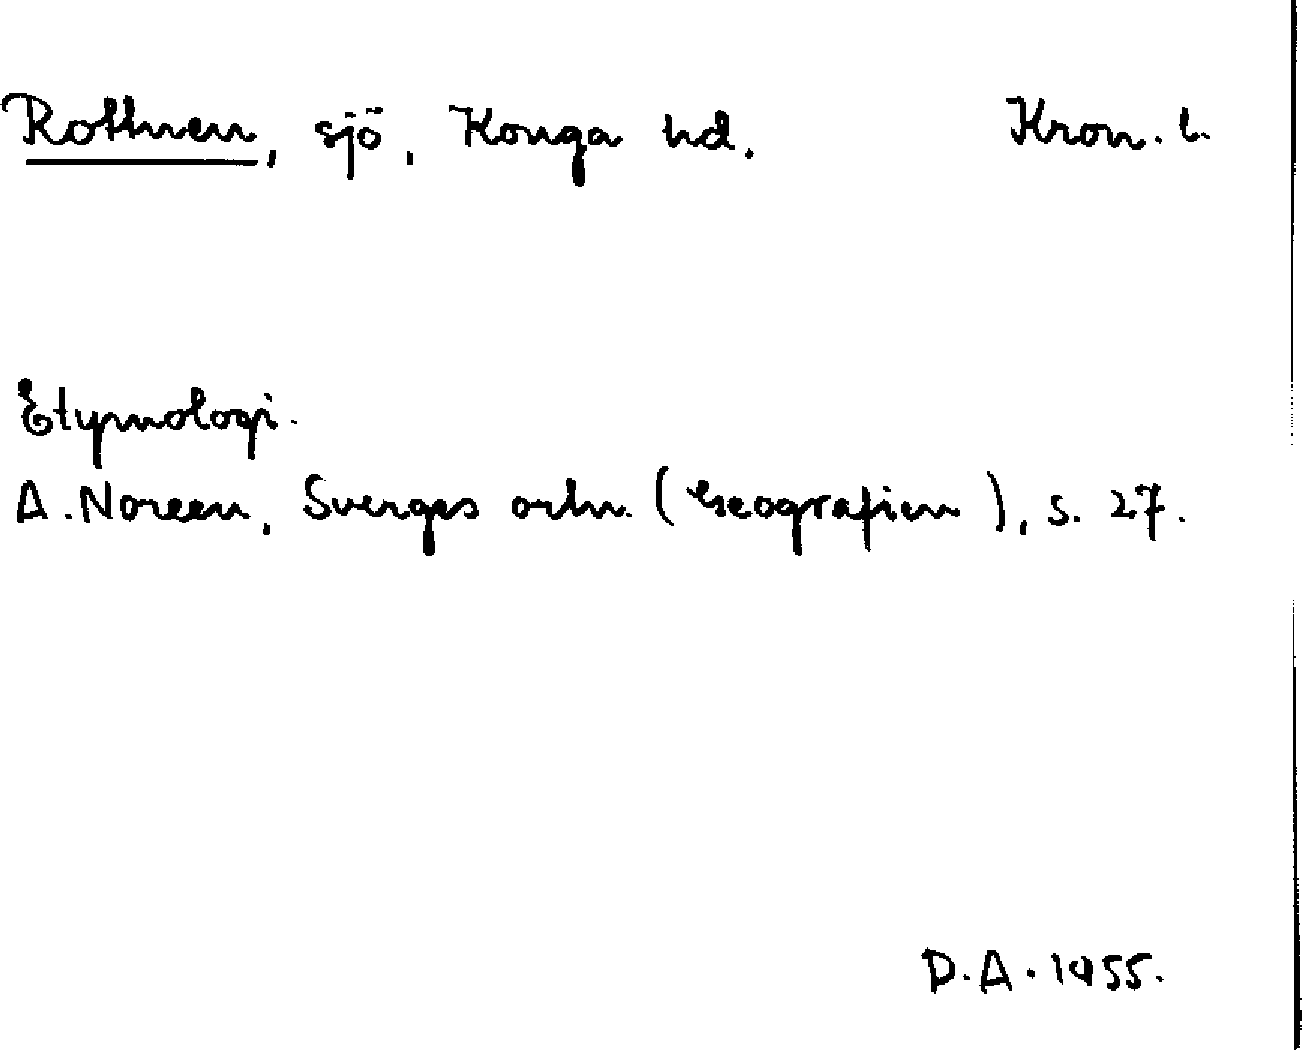 Rottnen, sjö, Konga hd. Kron. l.
Etymologi.
A. Noreen, Sverges ortn. (Geografien), s. 27.
D.A. 1955.